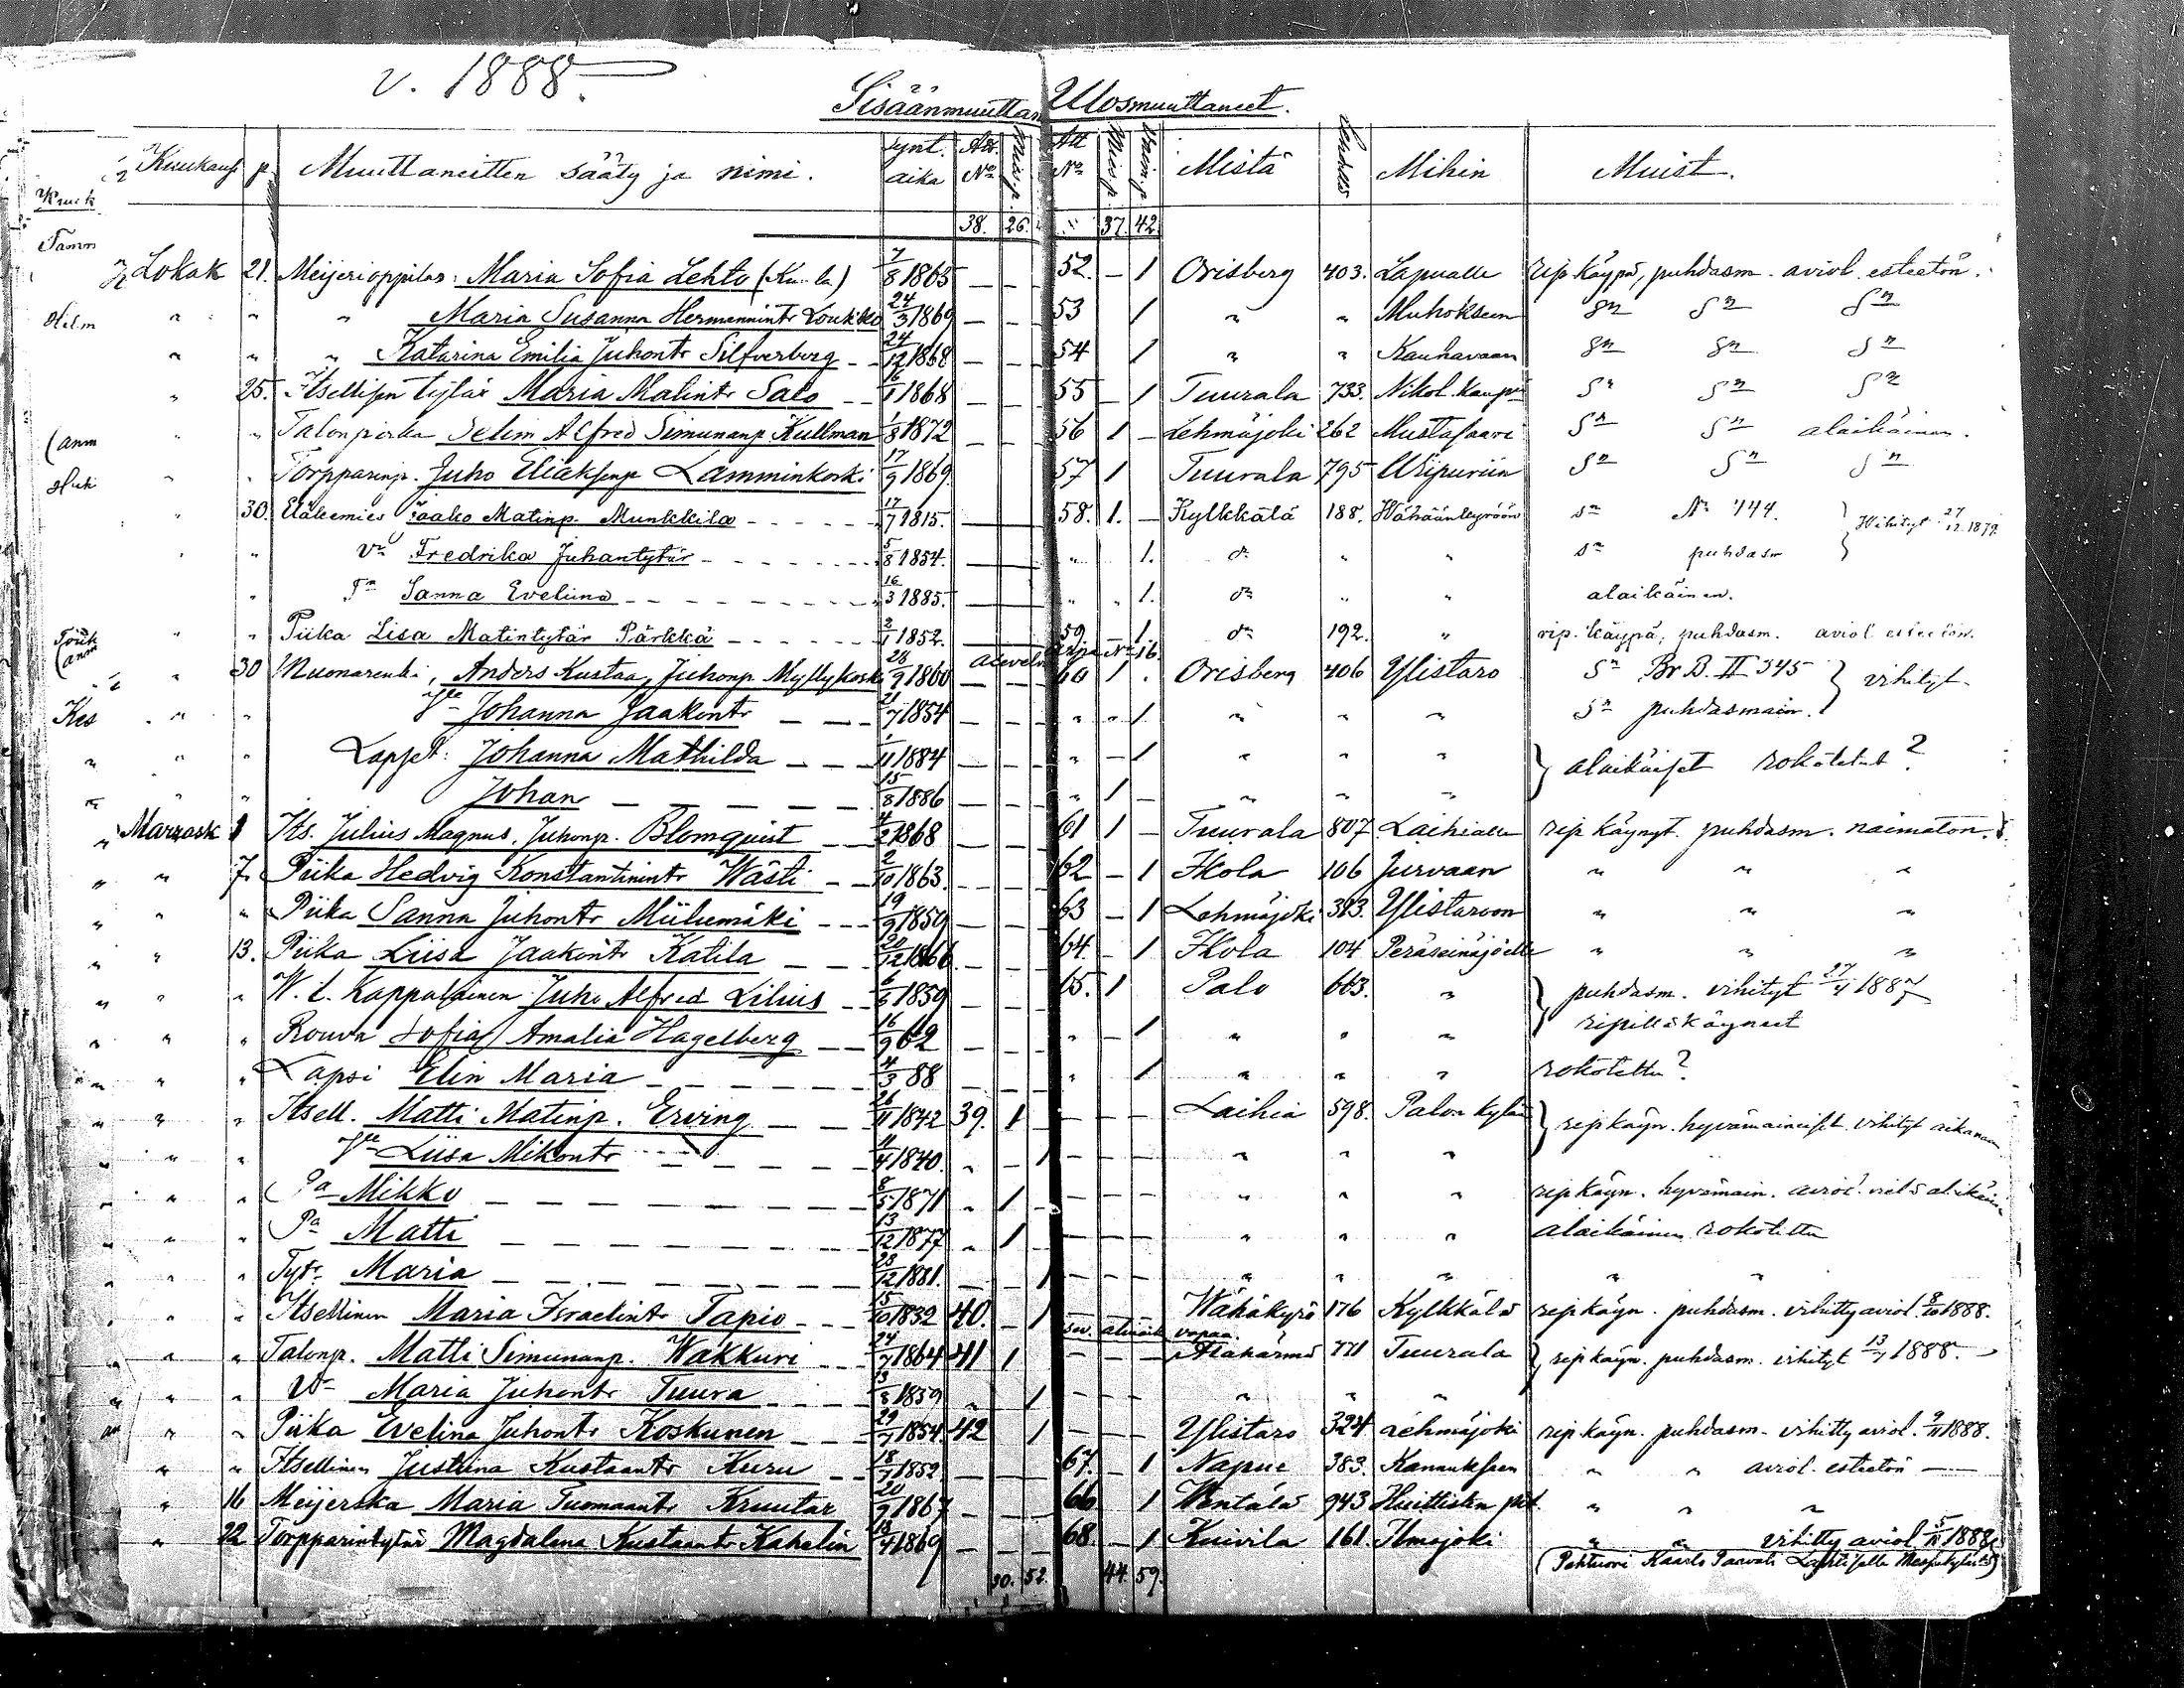 v. 1888.
Sisäänmuuttan Ulosmuuttaneet.
Kuukausi p. Muuttaneitten sääty ja nimi. Synt. aika Att. No. Miesp. Att No. Miesp. Vaim.p. Mistä Mihin Muist.
38. 26. " 37. 42
Lokak 21. Meijerioppilas: Maria Sofia Lehto 7/8 1865 — — 52. — 1 Orisberg 403. Lapualle rip käypä, puhdasm. aviol. esteetön.
" " " Maria Susanna Hermannintr Loukko 24/3 1869 — — 53 1 " " Muhokseen Sn Sn Sn
" " " Katarina Emilia Juhontr Silfverberg 24/12 1868 — — 54 1 " " Kauhavaan Sn Sn Sn
" 25. Itsellisen tytär Maria Malintr Salo 16/1 1868 — — 55 — 1 Tuurala 733. Nikol. kaup Sn Sn Sn
" " Talonpoika Selim Alfred Simunanp Kullman 1/8 1872 — — 56 1 — Lehmäjoki 262 Mustasaari Sn Sn alaikäinen.
" " Torpparinp. Juho Eliaksenp Lamminkoski 17/9 1869. 57 1 Tuurala 795 Wiipuriin Sn Sn Sn
" 30. Eläkemies Jaako Matinp. Munkkila 17/7 1815. — 58. 1. — Kylkkälä 188. Wähäänkyröön Sn No 444. Wihityt 27/12.1879.
" " Vo Fredrika Juhantytär 5/8 1854. — " 1. do " " Sn puhdasm
" Tr Sanna Eveliina 16/3 1885. — " " 1. do " " alaikäinen.
" " Piika Lisa Matintytär Pärkkä 2/1 1852. — 59. — 1. do 192. " rip. käypä, puhdasm. aviol. esteetön.
" 30 Muonarenki, Anders Kustaa, Juhonp Myllykoski 28/9 1860 — — 60 1 . Orisberg 406 Ylistaro Sn Br B. II 345 vihityt.
" " Johanna Jaakontr 21/7 1854 — — " " 1 " " " Sn puhdasmain.
" " Lapset: Johanna Mathilda 1/11 1884 — — " — 1 " " " alaikäiset rokotetut?
" " Johan 15/8 1886 — — " 1 — " " "
Marrask 1 Its. Julius Magnus. Juhonp. Blomqvist 4/2 1868 61 1 — Tuurala 807. Laihialle rip käynyt. puhdasm. naimaton.
" 7. Piika Hedvig Konstantinintr Wästi 2/10 1863. — — 62 — 1 Ikola 106 Jurvaan " " "
" " Piika Sanna Juhontr Miilumäki 19/9 1859 — — 63 — 1 Lehmäjoki 383. Ylistaroon " " "
" 13. Piika Liisa Jaakontr Katila 20/12 1866 — — 64. — 1 Ikola 104 Peräseinäjoelle " " "
" " W. t. Kappalainen Juho Alfred Lilius 6/6 1859 — 65. 1 Palo 663. " puhdasm. vihityt 27/4 1887
" " Rouva Sofia Amalia Hagelberg 16/9 62 — — " — 1 " " " ripillä käyneet
" " Lapsi Elin Maria 4/3 88 — — " 1 " " " rokotettu?
" " Itsell. Matti Matinp. Erving 26/11 1842 39. 1 — — — Laihia 598. Palon kylä ripkäyn. hyvämaineiset vihityt aikanaan
" " Liisa Mikontr 11/4 1840. " — 1 — — — " " "
" " Pa Mikko 8/5 1871 " 1 — — — — " " " ripkäyn. hyvämain. aviol. vielä alaikäin
" " Pa Matti 13/12 1877 " 1 — — — — " " " alaikäinen rokotettu
" " Tytr. Maria 23/12 1881. — — 1 — — — " " " " "
" " Itsellinen Maria Israelintr Tapio 15/10 1832 40. — 1 Wähäkyrö 176 Kylkkälä ripkäyn. puhdasm. vihitty aviol. 8/10 1888.
" " Talonp. Matti Simunanp. Wakkuri 24/7 1864 41 1 — — — Alahärmä 771 Tuurala ripkäyn. puhdasm. vihityt 13/7 1888.
" " Vo Maria Juhontr Tuura 13/8 1859 1 — — — " " "
" " Piika Evelina Juhontr Koskunen 29/7 1854. 42 1 — — — Ylistaro 324 Lehmäjoki ripkäyn. puhdasm. vihitty aviol. 9/11 1888.
" " Itsellinen Justina Kustaantr Kuru 18/7 1852. — — 67. — 1 Napue 383. Kannukseen " " aviol. esteetön —
" 16 Meijerska Maria Tuomaantr Kruutar 20/9 1867 — — 66 1 Wentälä 943 Huittisten pit. " " "
" 22 Torpparintytär Magdalena Kustaantr Kahelin 13/4 1869 — — 68. — 1 Kuivila 161. Ilmajoki " " vihitty aviol. 5/11 1888
30. 52. 44. 59.